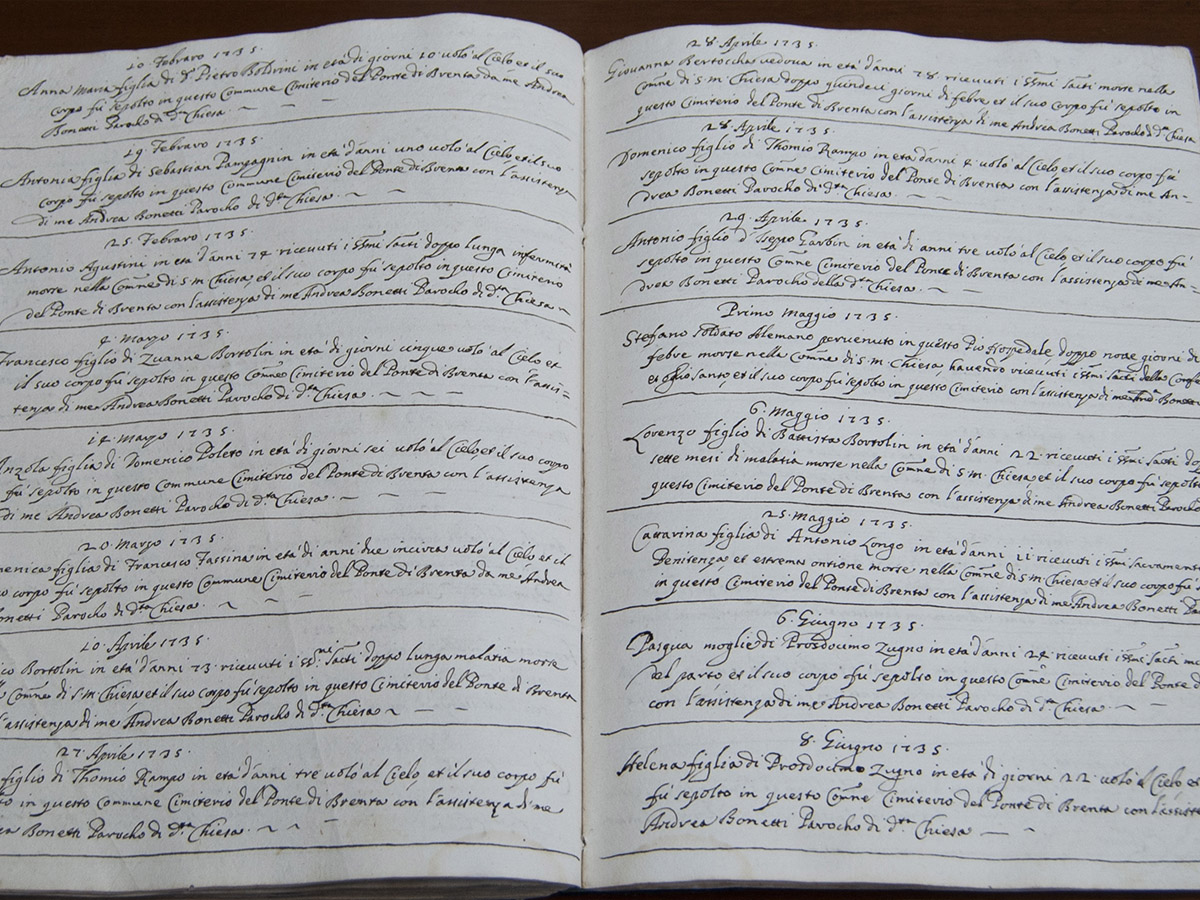 10 Febraro 1735.
Anna Maria figlia di Sr Pietro Boldrini in età di giorni 10 volò al Cielo et il suo
corpo fù sepolto in questo Commune Cimiterio del Ponte di Brenta da me Andrea
Bonetti Parocho di d.ta Chiesa
19 Febraro 1735.
Antonia figlia di Sebastian Pampagnin in età d'anni uno volò al Cielo et il suo
corpo fù sepolto in questo Commune Cimiterio del Ponte di Brenta con l'assistenza
di me Andrea Bonetti Parocho di d.ta Chiesa.
25 Febraro 1735.
Antonio Agustini in età d'anni 74 ricevuti i SSmi Sacti doppo lunga infermità
morse nella Comne di S. M. Chiesa, et il suo corpo fù sepolto in questo Cimiterio
del Ponte di Brenta con l'assistenza di me Andrea Bonetti Parocho di d.ta Chiesa
4. Marzo 1735.
Francesco figlio di Zuanne Bortolin in età di giorni cinque volò al Cielo et
il suo corpo fù sepolto in questo Comne Cimiterio del Ponte di Brenta con l'assis=
tenza di me Andrea Bonetti Parocho di d.ta Chiesa.
14. Marzo 1735.
Anzola figlia di Domenico Poleto in età di giorni sei volò al Cielo et il suo corpo
fù sepolto in questo Commune Cimiterio del Ponte di Brenta con l'assistenza
di me Andrea Bonetti Parocho di d.ta Chiesa.
20. Marzo 1735.
menica figlia di Francesco Fassina in età di anni due incirca volò al Cielo et il
corpo fù sepolto in questo Commune Cimiterio del Ponte di Brenta da me Andrea
onetti Parocho di d.ta Chiesa.
10. Aprile 1735.
co Bortolin in età d'anni 73. ricevuti i SS.mi Sacti doppo lunga malatia morse
Comne di S. M. Chiesa et il suo corpo fù sepolto in questo Cimiterio del Ponte di Brenta
l'assistenza di me Andrea Bonetti Parocho di d.ta Chiesa
27. Aprile 1735.
figlio di Thomio Rampo in età d'anni tre volò al Cielo, et il suo corpo fù
to in questo Commune Cimiterio del Ponte di Brenta con l'assistenza di me
ea Bonetti Parocho di d.ta Chiesa.
28. Aprile 1735.
Giovanna Bertocha vedova in età d'anni 78 ricevuti i SSmi Sacti morse nella
Comne di S. M. Chiesa doppo quindeci giorni di febre et il suo Corpo fù sepolto in
questo Cimiterio del Ponte di Brenta con l'assistenza di me Andrea Bonetti Parocho di d.ta Chiesa
28. Aprile 1735.
Domenico figlio di Thomio Rampo in età d'anni 4. volò al Cielo et il suo corpo fù
sepolto in questo Comne Cimiterio del Ponte di Brenta con l'assistenza di me An=
drea Bonetti Parocho di d.ta Chiesa.
29. Aprile 1735.
Antonio figlio d'Iseppo Garbin in età di anni tre volò al Cielo, et il suo corpo fù
sepolto in questo Comne Cimiterio del Ponte di Brenta con l'assistenza di me An=
drea Bonetti Parocho della d.ta Chiesa.
Primo Maggio 1735.
Stefano soldato Alemano pervenuto in questo Pio Hospedale doppo nove giorni di
febre morse nella Comne di S. M. Chiesa havendo ricevuti i SSmi Sacti della Conf
et oglio santo, et il suo corpo fù sepolto in questo Cimiterio con l'assistenza di me Andrea Bonetti
6. Maggio 1735.
Lorenzo figlio di Battista Bortolin in età d'anni 22. ricevuti i SSmi Sacti do
sette mesi di malatia morse nella Comne di S. M. Chiesa, et il suo corpo fù sepolto
questo Cimiterio del Ponte di Brenta con l'assistenza di me Andrea Bonetti Parocho
25. Maggio 1735.
Cattarina figlia di Antonio Longo in età d'anni 11 ricevuti i SSmi Sacrament
Penitenza et estrema ontione morse nella Comne di S. M. Chiesa et il suo corpo fù
in questo Cimiterio del Ponte di Brenta con l'assistenza di me Andrea Bonetti Pa
6. Giugno 1735.
Pasqua moglie di Prosdocimo Zugno in età d'anni 24 ricevuti i SSmi Sacti m
del parto et il suo corpo fù sepolto in questo Comne Cimiterio del Ponte d
con l'assistenza di me Andrea Bonetti Parocho di d.ta Chiesa.
8. Giugno 1735.
Helena figlia di Prosdocimo Zugno in età di giorni 22. volò al Cielo et
fù sepolto in questo Comne Cimiterio del Ponte di Brenta con l'assist
Andrea Bonetti Parocho di d.ta Chiesa